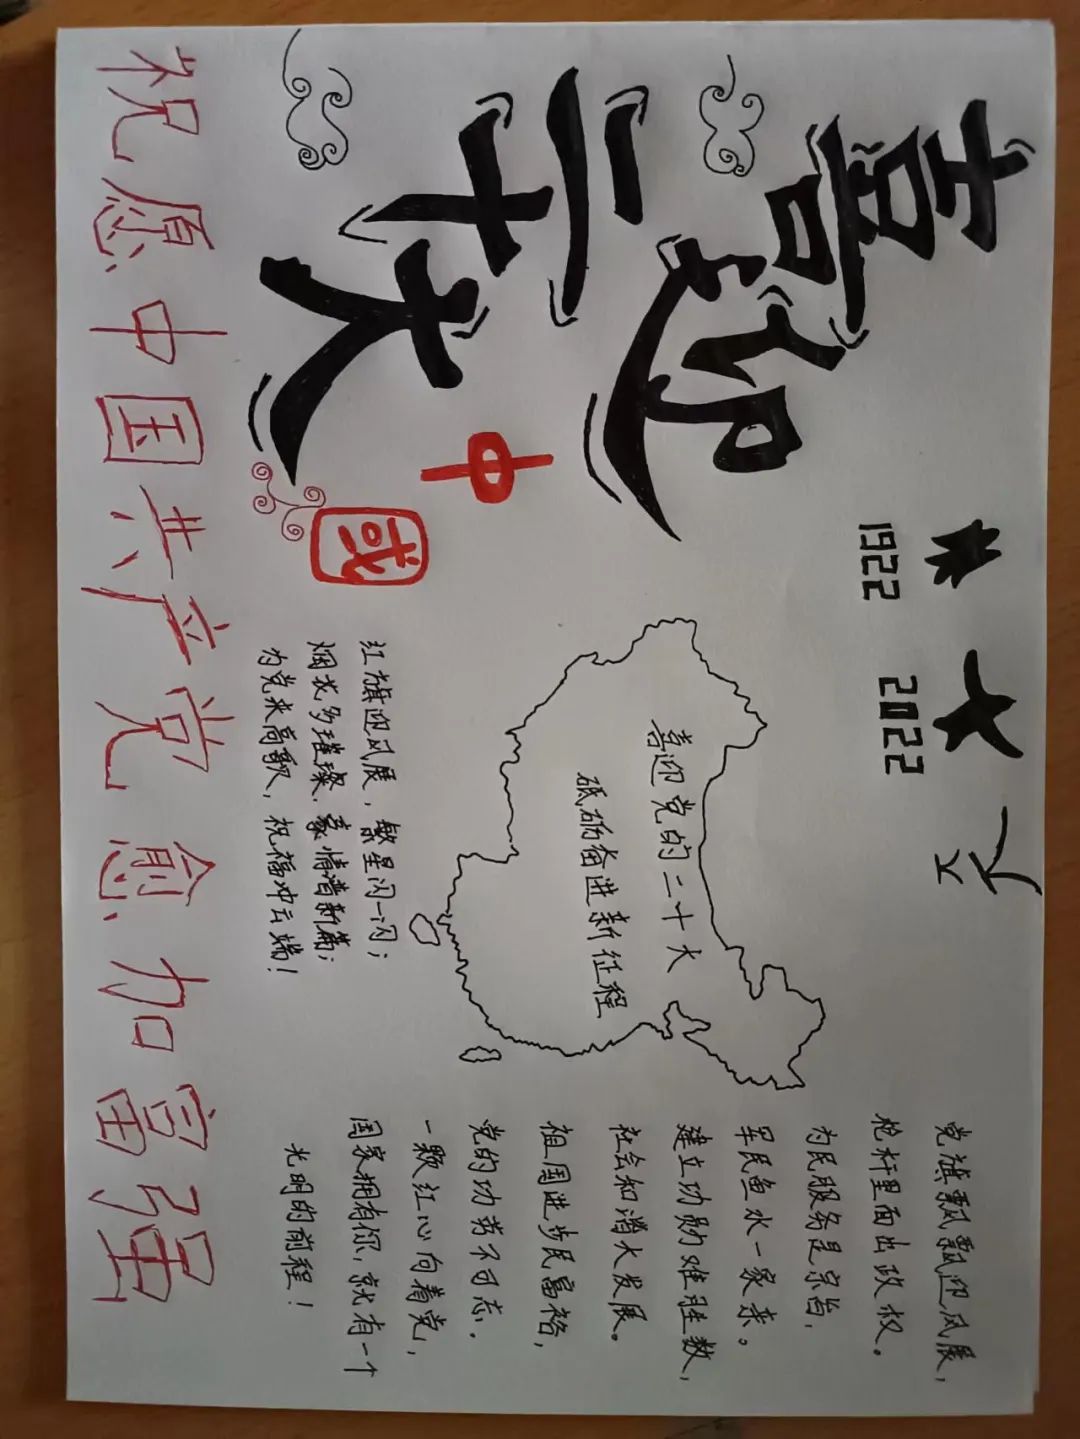 喜迎
二十大
1922 2022
中
国
喜迎党的二十大
砥砺奋进新征程
红旗迎风展，繁星闪一闪；
烟花多璀璨，豪情谱新篇；
为党来高歌，祝福冲云端！
党旗飘飘迎风展，
枪杆里面出政权。
为民服务是宗旨，
军民鱼水一家亲。
建立功勋难胜数，
社会和谐大发展。
祖国进步民富裕，
党的功劳不可忘．
一颗红心向着党，
国家拥有你，就有一个
光明的前程！
祝愿中国共产党愈加富强